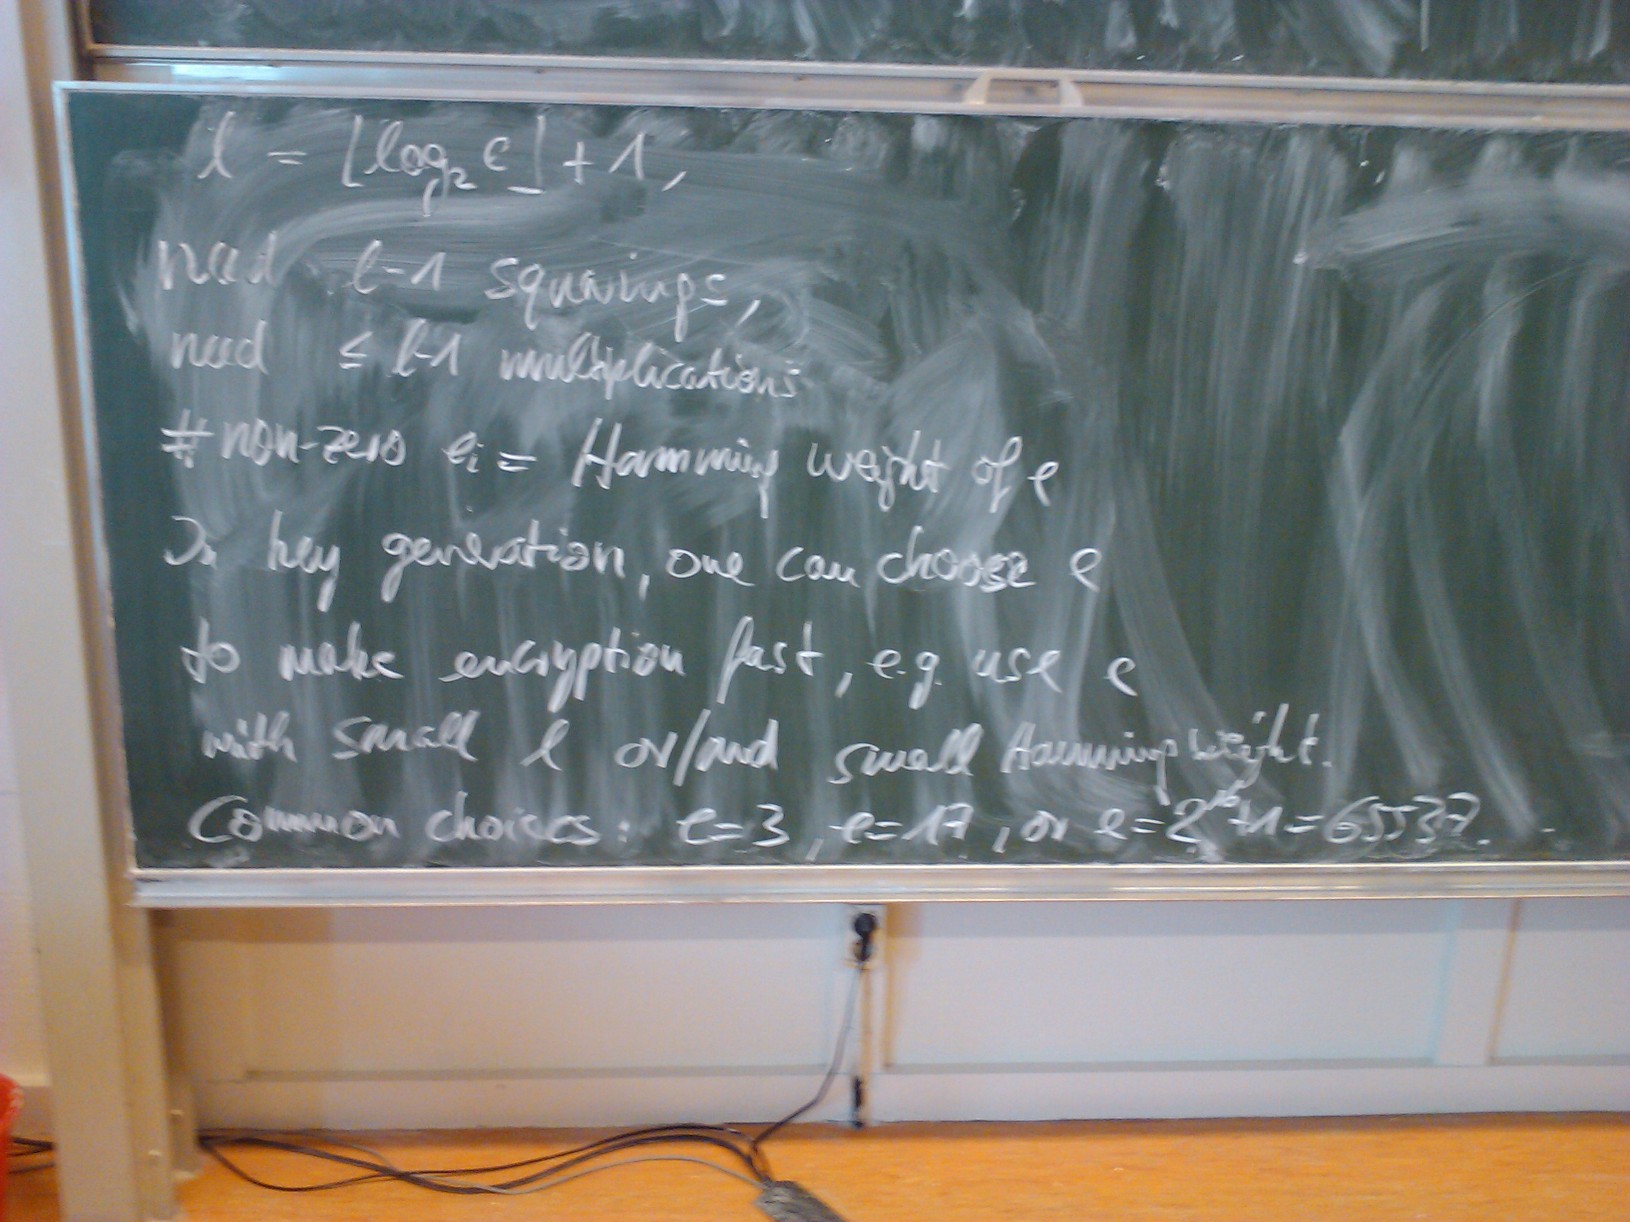 l = ⌊log₂ e⌋ + 1,
need l-1 squarings,
need ≤ l-1 multiplications
# non-zero eᵢ = Hamming weight of e
In key generation, one can choose e
to make encryption fast, e.g. use e
with small l or/and small Hamming weight.
Common choices: e=3, e=17, or e=2¹⁶+1=65537.